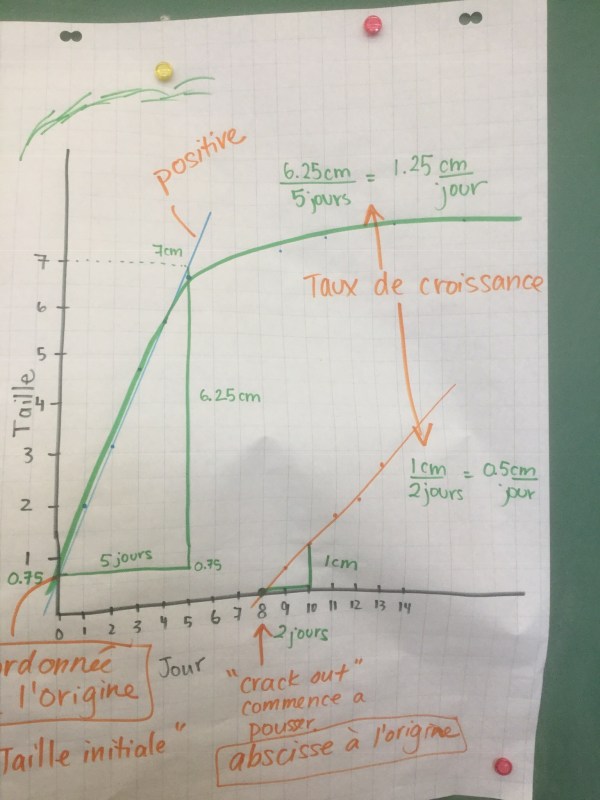 positive
6.25cm = 1.25 cm
5jours jour
7cm
Taux de croissance
7
6
5
4
3
2
1
Taille
6.25cm
1cm = 0.5cm
2jours jour
5jours
0.75
0.75
1cm
0 1 2 3 4 5 6 7 8 9 10 11 12 13 14
2jours
Jour
ordonnée
l'origine
"Taille initiale"
"crack out"
commence a
pousser
abscisse à l'origine